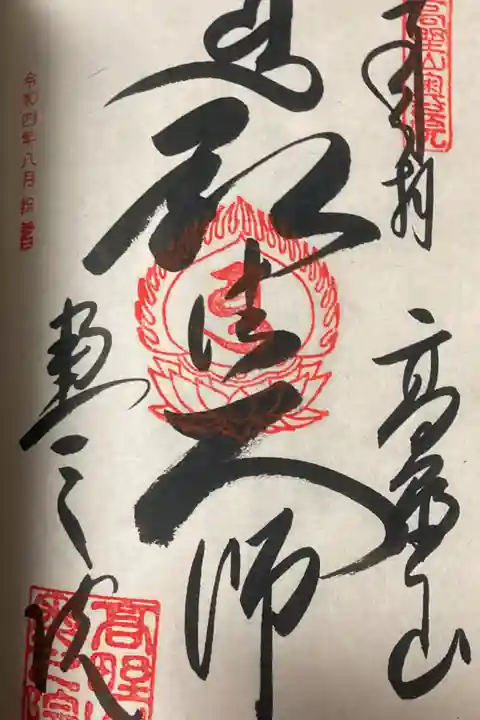 高野山奥之院
奉拝
高野山
弘法大師
奥之院
令和四年八月
高野山
奥之院